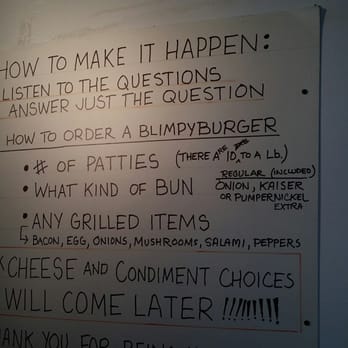 HOW TO MAKE IT HAPPEN:
LISTEN TO THE QUESTIONS
ANSWER JUST THE QUESTION
HOW TO ORDER A BLIMPYBURGER
• # OF PATTIES (THERE ARE 10 TO A Lb.)
• WHAT KIND OF BUN
REGULAR (INCLUDED)
ONION, KAISER
OR PUMPERNICKEL
EXTRA
• ANY GRILLED ITEMS
↳ BACON, EGG, ONIONS, MUSHROOMS, SALAMI, PEPPERS
CHEESE AND CONDIMENT CHOICES
WILL COME LATER !!!!!!!!!
THANK YOU FOR BEING